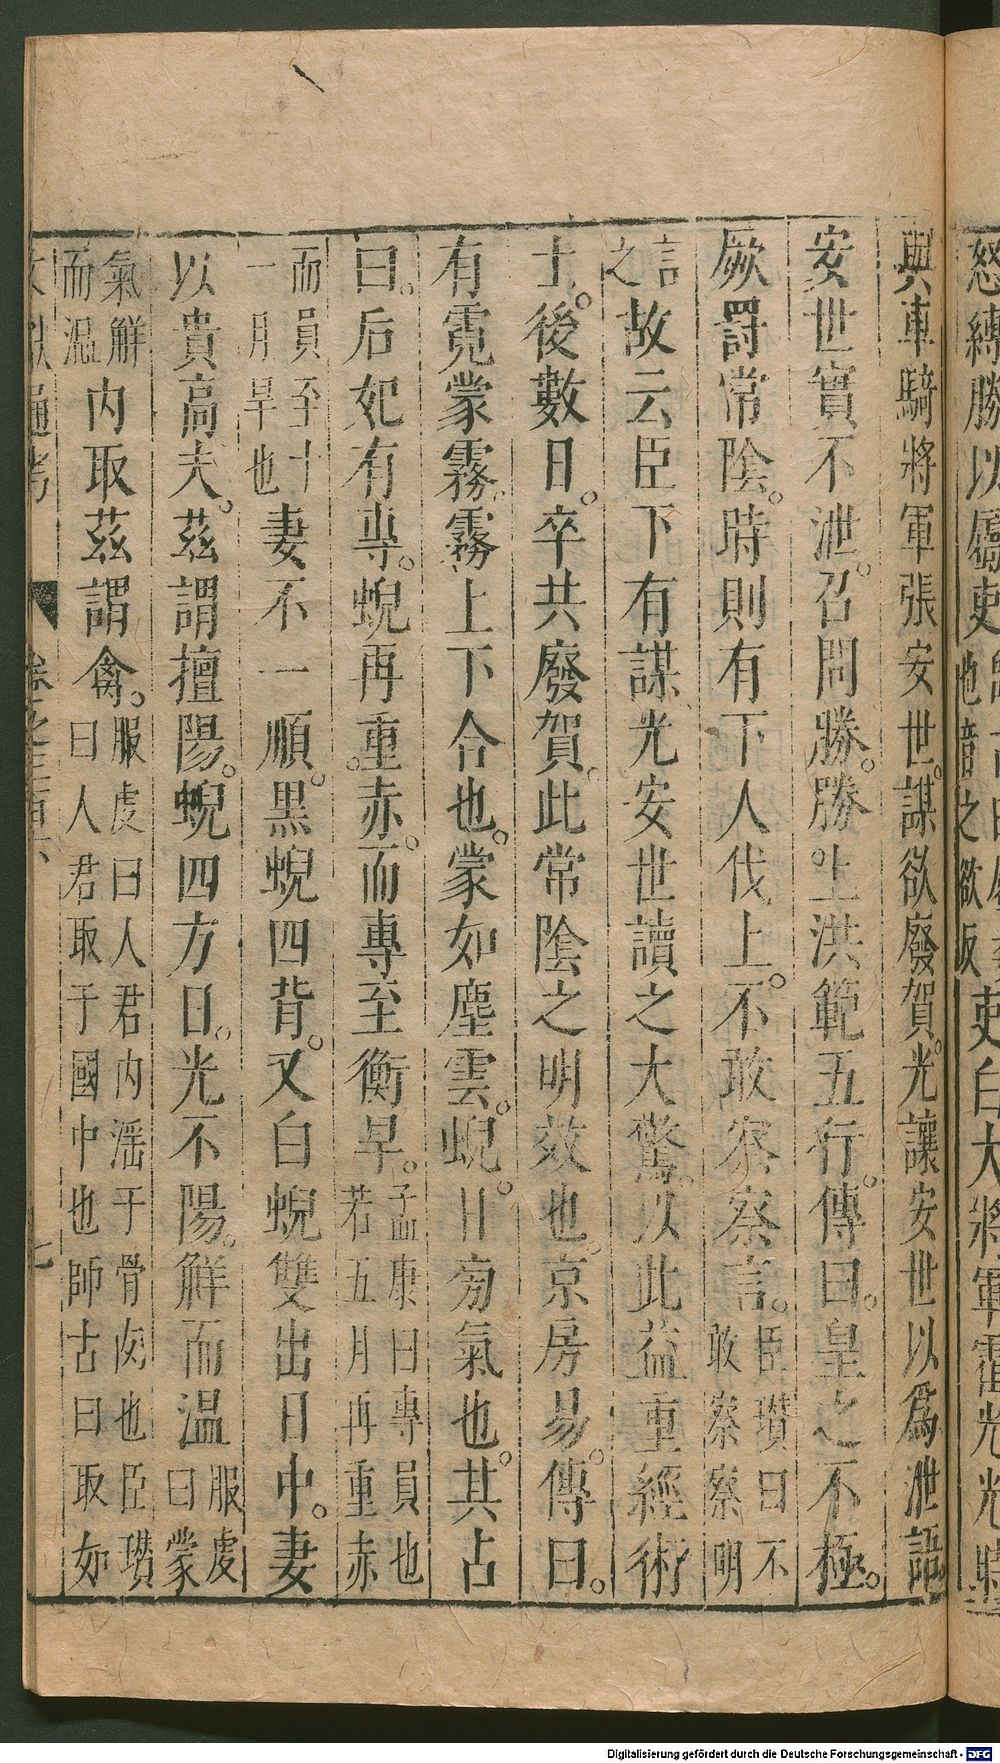 怒縛勝以屬吏
也音之欲反
吏白大將軍霍光光時
與車騎將軍張安世謀欲廢賀光讓安世以爲泄語
安世實不泄召問勝勝上洪範五行傳曰皇之不極
厥罰常陰時則有下人伐上不敢察察言臣瓚曰不敢察察明
言之故云臣下有謀光安世讀之大驚以此益重經術
士後數日卒共廢賀此常陰之明效也京房易傳曰
有霓蒙霧霧上下合也蒙如塵雲蜺日旁氣也其占
曰后妃有專蜺再重赤而專至衝旱孟康曰專員也若五月再重赤
而員至十一月旱也妻不一順黑蜺四背又白蜺雙出日中妻
以貴高夫茲謂擅陽蜺四方日光不陽解而温服虔曰蒙
氣解而温內取茲謂禽服虔曰人君內淫于骨肉也臣瓚曰人君取于國中也師古曰取如
文獻通考
卷之三百六
七
Digitalisierung gefördert durch die Deutsche Forschungsgemeinschaft - DFG